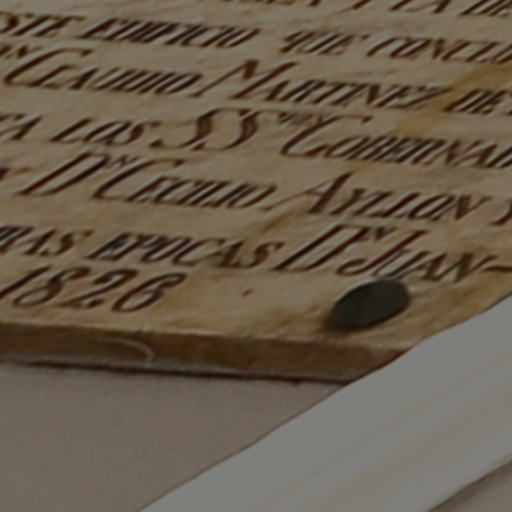 STE EDIFICIO QUE CONCLU
ON CLAUDIO MARTINEZ DE
A LOS SS RES GOBERNA
DN CECILIO AYLLON Y
RAS EPOCAS DN JUAN
1826